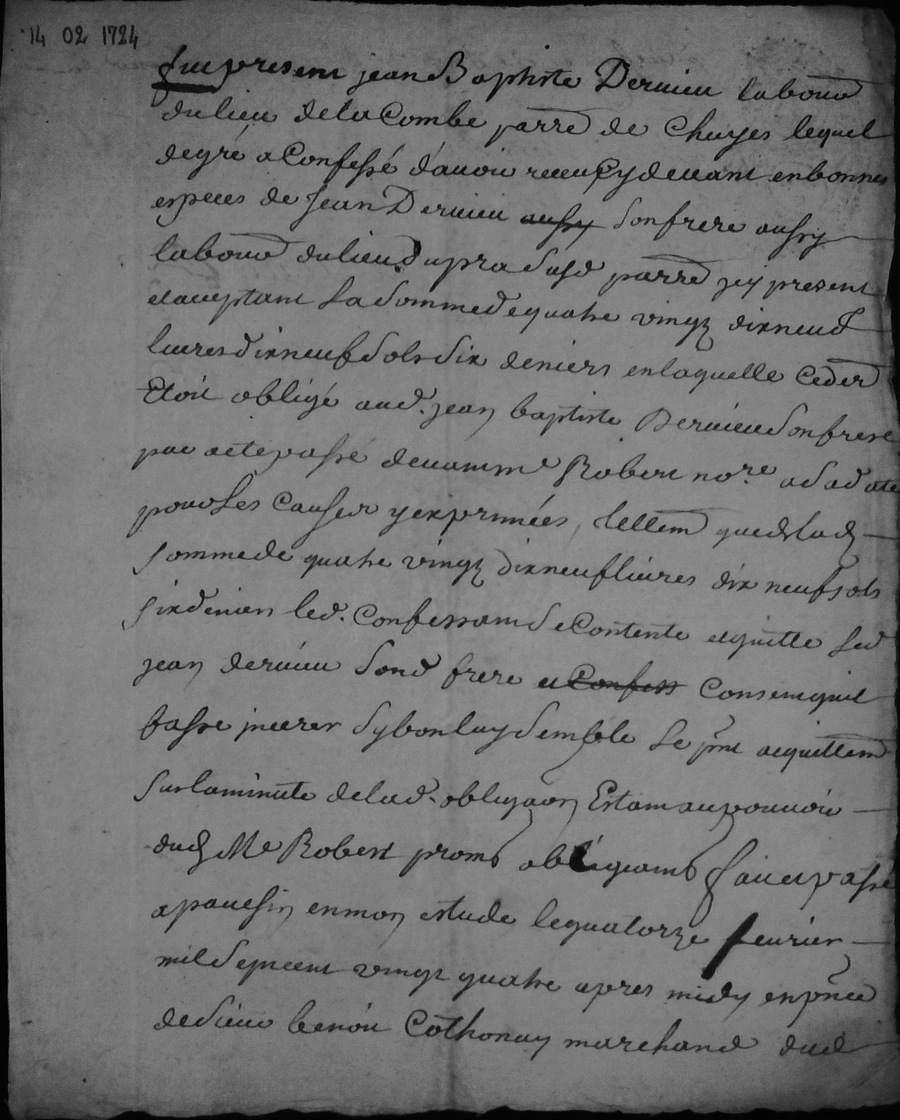 14 02 1724
Fut present jean Baptiste Dervieu labour
du lieu de la Combe parre de Chuyes lequel
de gré a Confessé d'avoir receu cy devant en bonnes
especes de Jean Dervieu aussy son frere aussy
labour du lieu supra susd parre icy present
et aceptant La Somme de quatre vingt dix neuf
livres dix neuf sols six deniers en laquelle ced der
Etoit obligé aud. jean baptiste Dervieu son frere
par acte passé devant me Robert nore a sa date
pour les Causes y exprimées, tellem que de lad
somme de quatre vingt dix neuf livres dix neuf sols
six deniers led. confessant se Contente et quitte led
jean dervieu sond frere et Confess consent quil
fasse inserer sy bon luy semble le pnt acquittem
sur la minute de lad. obligaon Estant au pouvoir
dud Me Robert proms obligeams fait et passé
a pavesin en mon etude le quatorze fevrier
mil sept cent vingt quatre apres midy en pnce
de sieur benoit Cothonay marchand dud